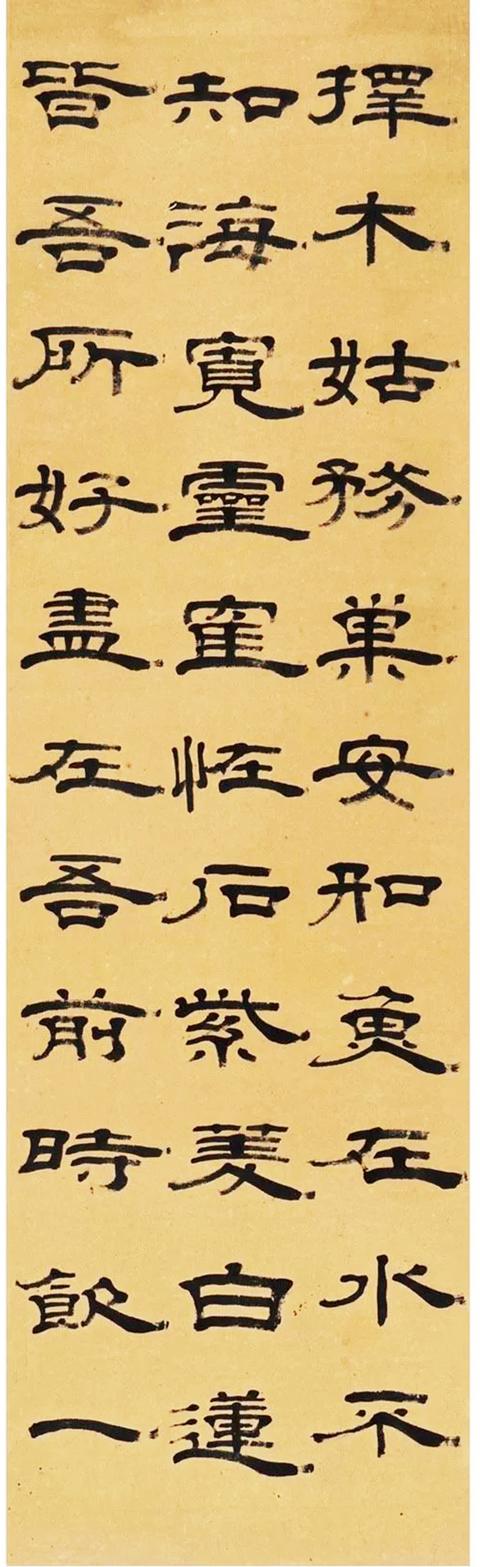 擇木姑務巢安如魚在水不
知海寬靈寉恠石紫菱白蓮
皆吾所好盡在吾前時飲一